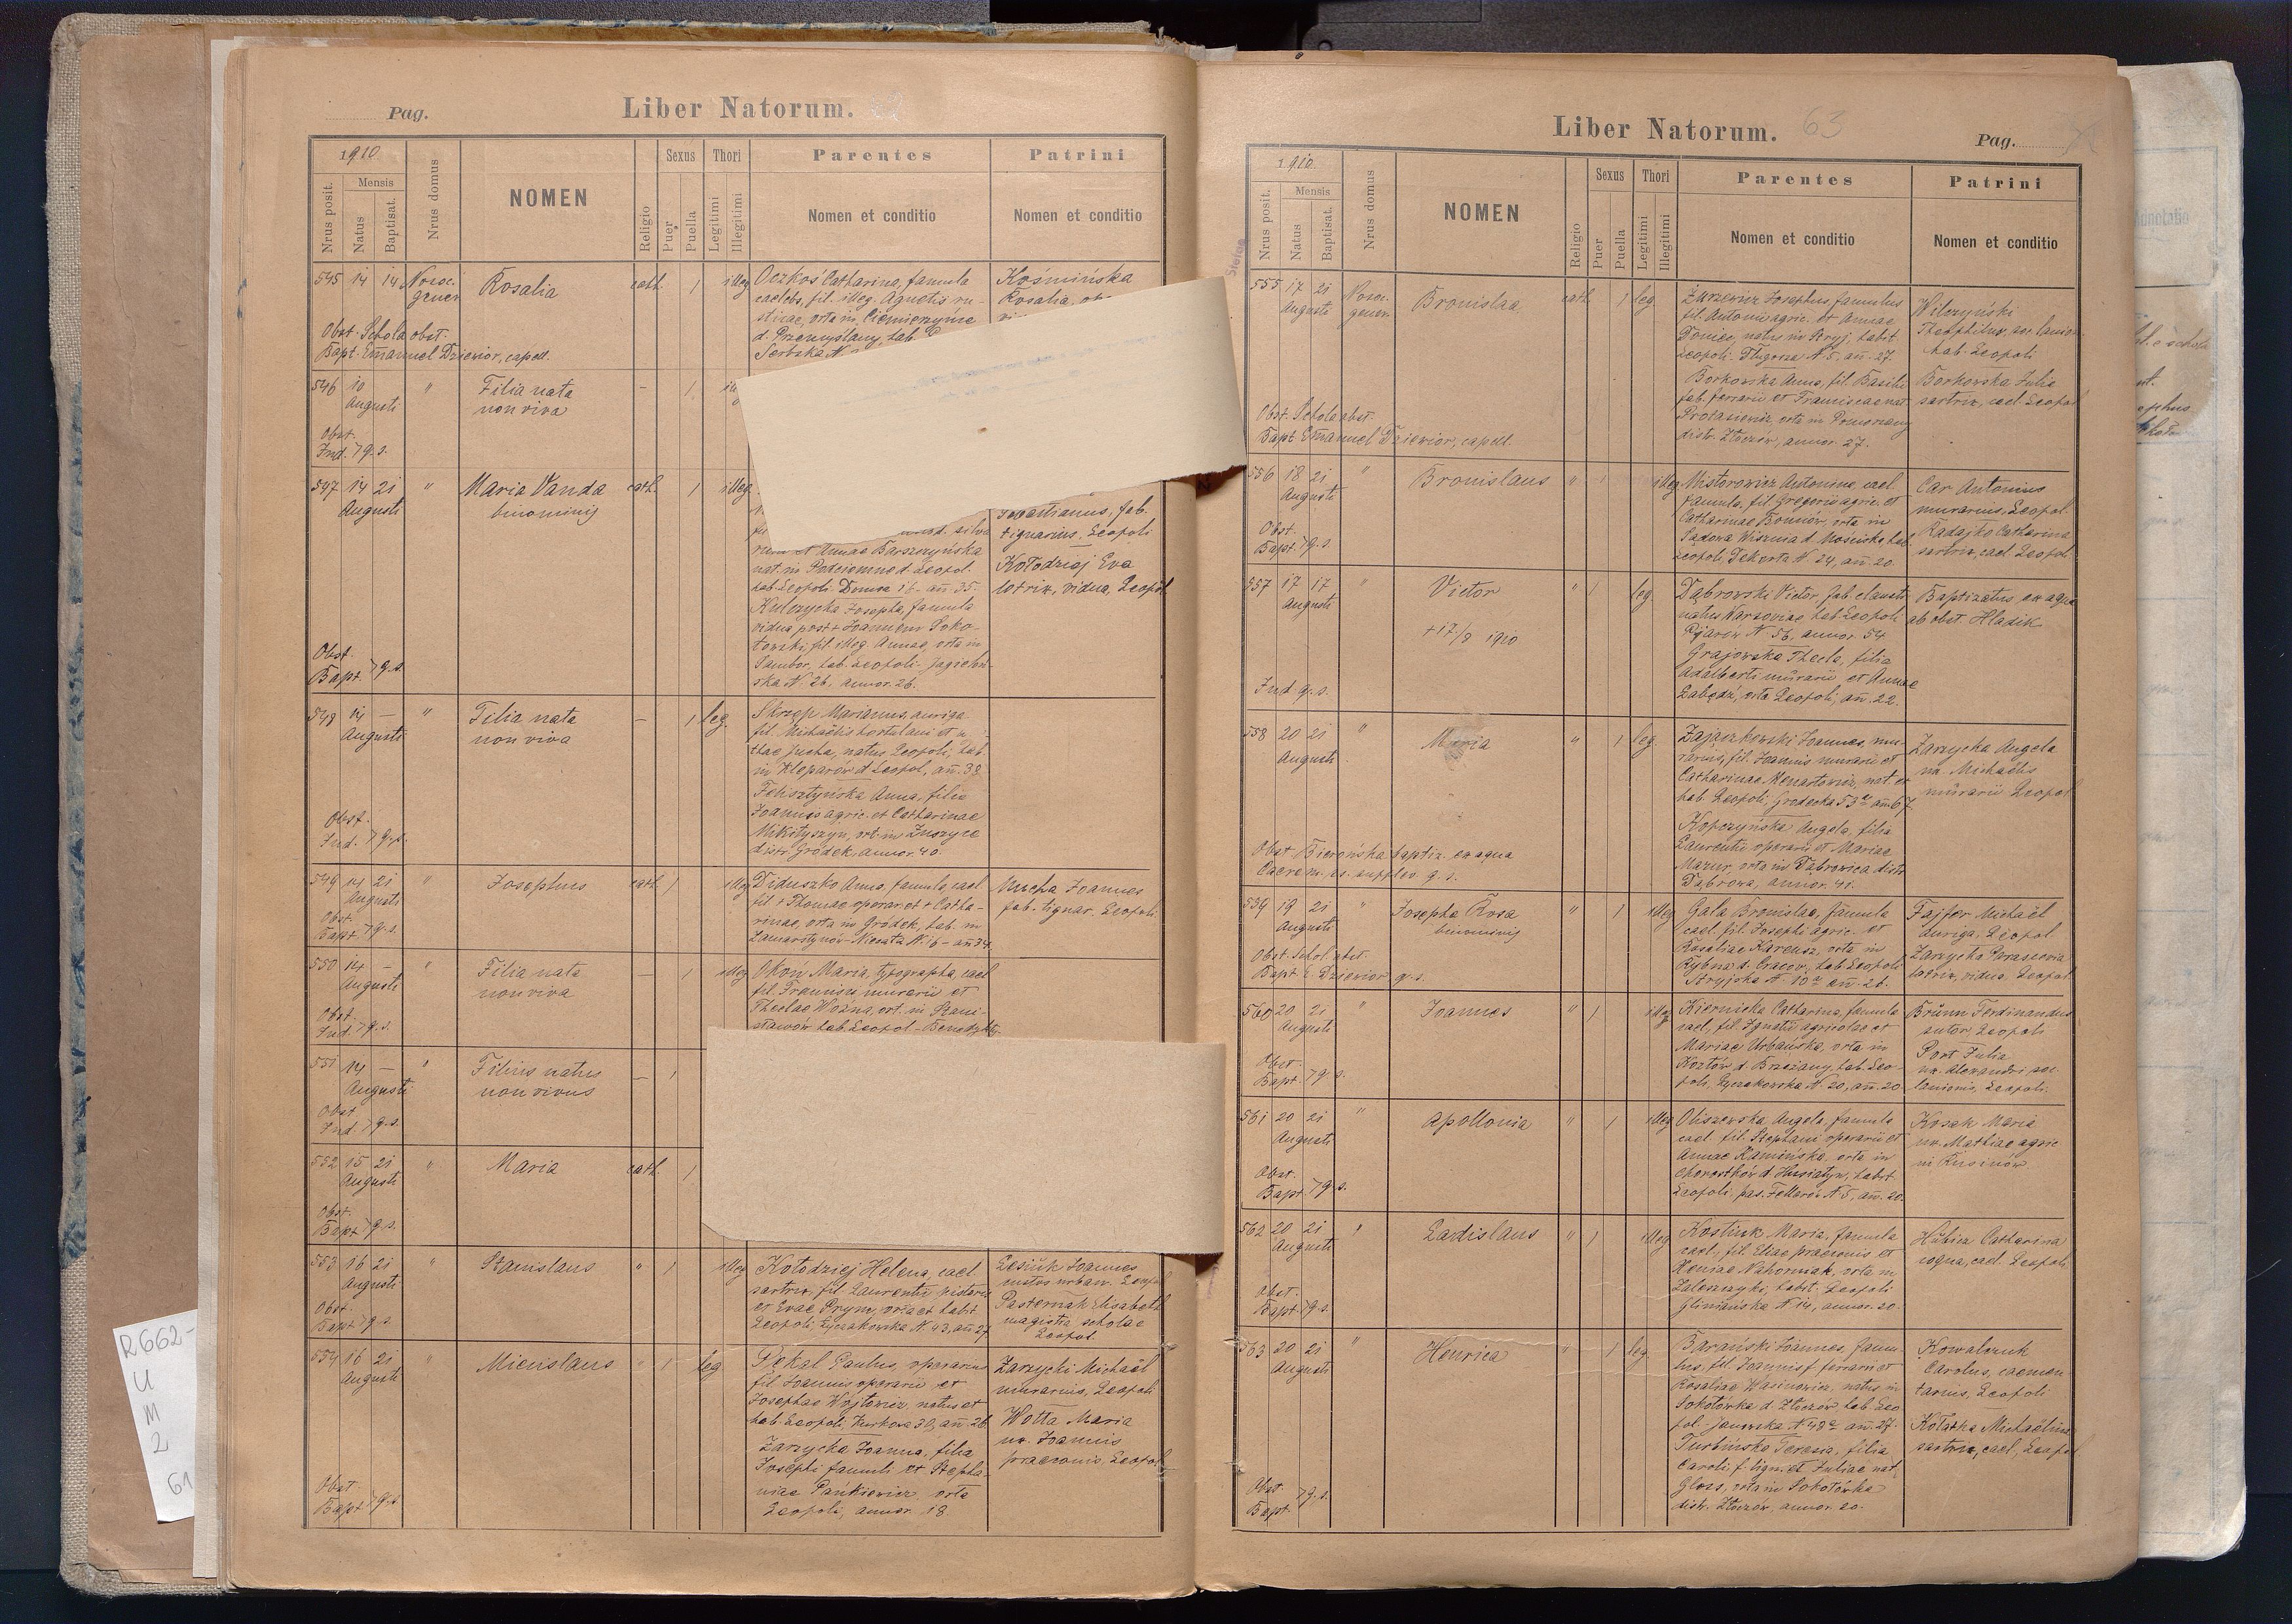 Pag.
Liber Natorum.
1910
Mensis
Sexus
Thori
Parentes
Patrini
Nrus posit.
Natus
Baptisat.
Nrus domus
NOMEN
Religio
Puer
Puella
Legitimi
Illegitimi
Nomen et conditio
Nomen et conditio
545 14 14
Rosalia
cath. 1 illeg
Oczkoś Catharina, famula
caelebs, fil. illeg. Agnetis ru-
sticae, orta in Ciemierzyńce
d. Przemyślany, hab.
Kośmińska
Rosalia
Obst. Schola obst.
Bapt. Emanuel Dziewior, capell.
546 10
Augusti
"
Filia nata
non viva
– 1
Obst.
Ind. q.s.
547 14 21
Augusti
"
Maria Vanda
binominis
cath. 1 illeg.
et Annae Barszczyńska
nat. in Podciemne d. Leopol.
hab. Leopoli Domsa 16 – añ. 35.
Kulczycka Josepha, famula
vidua post + Joannem Soko-
łowski, fil. illeg. Annae, orta in
Sambor, hab. Leopoli Jagielon-
ska N. 26, annor. 26.
fab.
tignarius, Leopoli
Kołodziej Eva
lotrix, vidua, Leopol
Obst.
Bapt. q.s.
548 14 –
Augusti
"
Filia nata
non viva
– 1 leg.
Skrzep Marianus, auriga
fil. Michaëlis hortulani et
Jucha, natus Leopoli, hab.
in Kleparów d Leopol, añ. 38.
Felisztyńska Anna, filia
Joannis agric. et Catharinae
Mikityszyn, ort. in
distr. Gródek, annor. 40.
Obst.
Ind. q.s.
549 14 21
Augusti
"
Josephus
cath. 1 illeg
Diduszko Anna, famula, cael
fil + Thomae operar. et + Catha-
rinae, orta in Gródek, hab. in
Zamarstynów N. 16 – añ 34.
Mucha Joannes
fab. tignar. Leopoli
Obst.
Bapt. q.s.
550 14 –
Augusti
"
Filia nata
non viva
– 1 illeg
Okoń Maria, typographa, cael
fil. Francisci murarii et
Theclae Woźna, ort. in Stani-
sławów hab. Leopol –
Obst.
Ind. q.s.
551 14 –
Augusti
"
Filius natus
non vivus
– 1
Obst.
Ind. q.s.
552 15 21
Augusti
"
Maria
cath. 1
Obst.
Bapt. q.s.
553 16 21
Augusti
"
Stanislaus
" 1 illeg
Kołodziej Helena, cael.
sartrix, fil. Laurentii pistoris
et Evae Prym, orta et habit
Leopoli Łyczakowska N. 43, añ 27
Lesiuk Joannes
custos urban. Leopol
Pasternak Elisabeth
magistra scholae
Leopol.
Obst.
Bapt. q.s.
554 16 21
Augusti
"
Miecislaus
" 1 leg
Dekal Paulus, operarius
fil. Joannis operarii et
Josephae Wojtowicz, natus et
hab. Leopoli, Kurkowa 30, añ. 26.
Zarzycka Joanna, filia
Josephi famuli et Stepha-
niae Pankiewicz, orta
Leopoli, annor. 18
Zarzycki Michaël
murarius, Leopoli
Wotta Maria
ux. Joannis
praeconis, Leopol
Obst.
Bapt. q.s.
R662-
U
M
2
61
Liber Natorum. 63
Pag.
1910
Mensis
Sexus
Thori
Parentes
Patrini
Nrus posit.
Natus
Baptisat.
Nrus domus
NOMEN
Religio
Puer
Puella
Legitimi
Illegitimi
Nomen et conditio
Nomen et conditio
555 17 21
Augusti
Bronislaa
cath. 1 leg
Zurzewicz Josephus, famulus
fil. Antonii agric. et Annae
Donice, natus in Stryj, habit.
Leopoli Długosza N. 5, añ. 27.
Borkowska Anna, fil. Basilii
fab. ferrarii et Franciscae nat
Protasiewicz, orta in Pomorzany
distr. Złoczów, annor. 27.
Wilczyński
Theophilus
hab. Leopoli
Borkowska Julia
sartrix, cael. Leopol
Obst. Schola obst.
Bapt Emanuel Dziewior, capell.
556 18 21
Augusti
"
Bronislaus
" 1 illeg
Mistorowicz Antonina, cael
famula, fil Gregorii agric. et
Catharinae Bonciów, orta in
Sądowa Wisznia d Mościska hab
Leopoli, Dekerta N. 24, añ. 20.
Car Antonius
murarius, Leopol
Radajko Catharina
sartrix, cael. Leopol.
Obst.
Bapt. q.s.
557 17 17
Augusti
"
Victor
" 1 leg.
+ 17/8 1910
Dąbrowski Victor, fab. claustr
natus Varsoviae hab. Leopoli
Pijarów N. 56, annor. 54
Grajowska Thecla, filia
Adalberti murarii et Annae
Łabędź, orta Leopoli, añ. 22.
Baptizatus ex aqua
ab obst. Hladik
Ind q.s.
558 20 21
Augusti
"
Maria
" 1 leg.
Zajączkowski Joannes, mu-
rarius, fil. Joannis murarii et
Catharinae Menartowicz, nat et
hab. Leopoli, Grodecka 53ª añ. 67.
Kopczyńska Angela, filia
Laurentii operarii et Mariae
Mazur, orta in Dąbrowica distr
Dąbrowa, annor. 41.
Zarzycka Angela
ux. Michaëlis
murarii Leopol
Obst Bierońska baptiz. ex aqua
Caerem. supplev. q.s.
559 19 21
Augusti
"
Josepha Rosa
binominis
" 1 illeg
Gala Bronislaa, famula
cael. fil. Josephi agric. et
Rosaliae Karcusz, orta in
Rybna d. Cracov, hab Leopoli
Stryjska N. 10ª añ. 26.
Fajfer Michaël
auriga, Leopol
Zarzycka Parascevia
lotrix, vidua, Leopol
Obst. Schol. obst.
Bapt E. Dziewior q.s.
560 20 21
Augusti
"
Joannes
" 1 illeg
Kiernicka Catharina, famula
cael., fil. Ignatii agricolae et
Mariae Urbańska, orta in
Kozłów d Brzeżany, hab. Leo-
poli, Łyczakowska N. 20, añ. 20
Brünn Ferdinandus
sutor, Leopoli
Port Julia
ux. Alexandri
lanionis, Leopoli
Obst.
Bapt. q.s.
561 20 21
Augusti
"
Apollonia
" 1 illeg
Oliszewska Angela, famula
cael. fil. Stephani operarii et
Annae Kamińska, orta in
Chorostków d Husiatyn, habit
Leopoli, pas. Fellerów N. 5, añ. 20.
Kosak Maria
ux. Mathiae agric
in Rusinów
Obst.
Bapt. q.s.
562 20 21
Augusti
"
Ladislaus
" 1 illeg
Kostiuk Maria, famula
cael., fil. Eliae praeconis et
Xeniae Nahorniak, orta in
Zaleszczyki, habit. Leopoli
Gliniańska N. 14, annor. 20.
Catharina
coqua, cael. Leopoli
Obst.
Bapt. q.s.
563 20 21
Augusti
"
Henrica
" 1 leg.
Barański Joannes, famu-
lus, fil. Joannis f. ferrarii et
Rosaliae Wasinowicz, natus in
Sokołówka d. Złoczów hab. Leo
pol. Janowska N 48ª añ. 27.
Turbińska Teresia, filia
Caroli f. lign. et Juliae nat.
Gloss, orta in Sokołówka
distr. Złoczów, annor. 20.
Kowalczuk
Carolus, caemen
tarius, Leopoli
Michaëlina
sartrix, cael, Leopol
Obst.
Bapt. q.s.